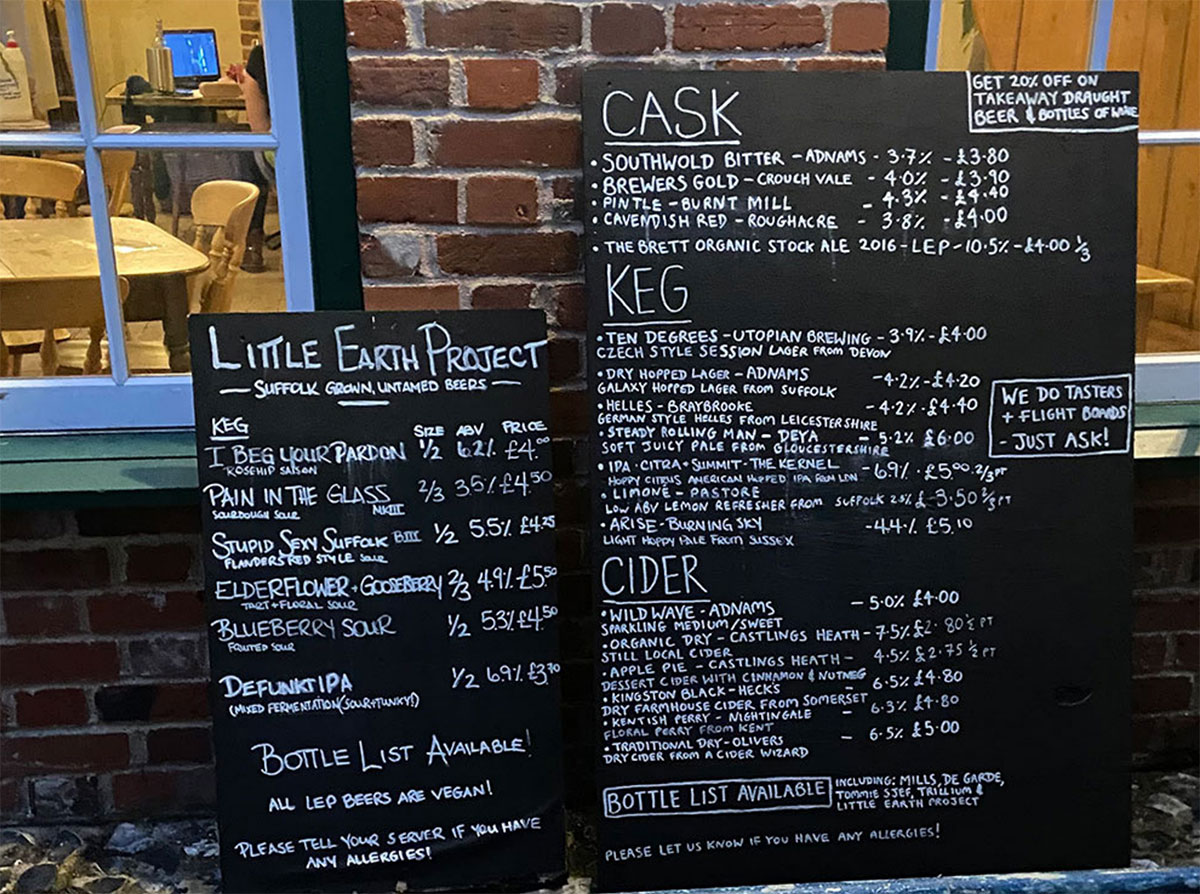 LITTLE EARTH PROJECT
— SUFFOLK GROWN, UNTAMED BEERS —
KEG SIZE ABV PRICE
I BEG YOUR PARDON 1/2 6.2% £4.00
ROSEHIP SAISON
PAIN IN THE GLASS MKIII 2/3 3.5% £4.50
SOURDOUGH SOUR
STUPID SEXY SUFFOLK BIII 1/2 5.5% £4.25
FLANDERS RED STYLE SOUR
ELDERFLOWER + GOOSEBERRY 2/3 4.9% £5.50
TART + FLORAL SOUR
BLUEBERRY SOUR 1/2 5.3% £4.50
FRUITED SOUR
DEFUNKT IPA 1/2 6.9% £3.70
(MIXED FERMENTATION (SOUR + FUNKY!)
BOTTLE LIST AVAILABLE!
ALL LEP BEERS ARE VEGAN!
PLEASE TELL YOUR SERVER IF YOU HAVE
ANY ALLERGIES!
CASK
GET 20% OFF ON
TAKEAWAY DRAUGHT
BEER & BOTTLES OF WINE
• SOUTHWOLD BITTER – ADNAMS - 3.7% - £3.80
• BREWERS GOLD – CROUCH VALE - 4.0% - £3.90
• PINTLE – BURNT MILL - 4.3% - £4.40
• CAVENDISH RED – ROUGHACRE - 3.8% - £4.00
• THE BRETT ORGANIC STOCK ALE 2016 – LEP – 10.5% - £4.00 1/3
KEG
• TEN DEGREES – UTOPIAN BREWING – 3.9% - £4.00
CZECH STYLE SESSION LAGER FROM DEVON
• DRY HOPPED LAGER – ADNAMS - 4.2% - £4.20
GALAXY HOPPED LAGER FROM SUFFOLK
• HELLES – BRAYBROOKE - 4.2% - £4.40
GERMAN STYLE HELLES FROM LEICESTERSHIRE
• STEADY ROLLING MAN – DEYA - 5.2% £6.00
SOFT JUICY PALE FROM GLOUCESTERSHIRE
• IPA · CITRA + SUMMIT - THE KERNEL - 6.9% · £5.00 · 2/3 PT
HOPPY CITRUS AMERICAN HOPPED IPA FROM LDN
• LIMONE – PASTORE
LOW ABV LEMON REFRESHER FROM SUFFOLK 2.5% £3.50 2/3 PT
• ARISE – BURNING SKY - 4.4% £5.10
LIGHT HOPPY PALE FROM SUSSEX
WE DO TASTERS
+ FLIGHT BOARDS
- JUST ASK!
CIDER
• WILD WAVE – ADNAMS - 5.0% £4.00
SPARKLING MEDIUM/SWEET
• ORGANIC DRY – CASTLINGS HEATH – 7.5% £2.80 1/2 PT
STILL LOCAL CIDER
• APPLE PIE – CASTLINGS HEATH – 4.5% £2.75 1/2 PT
DESSERT CIDER WITH CINNAMON & NUTMEG
• KINGSTON BLACK – HECK'S - 6.5% £4.80
DRY FARMHOUSE CIDER FROM SOMERSET
• KENTISH PERRY – NIGHTINGALE - 6.3% £4.80
FLORAL PERRY FROM KENT
• TRADITIONAL DRY – OLIVERS - 6.5% £5.00
DRY CIDER FROM A CIDER WIZARD
BOTTLE LIST AVAILABLE
INCLUDING: MILLS, DE GARDE,
TOMMIE SJEF, TRILLIUM &
LITTLE EARTH PROJECT
PLEASE LET US KNOW IF YOU HAVE ANY ALLERGIES!